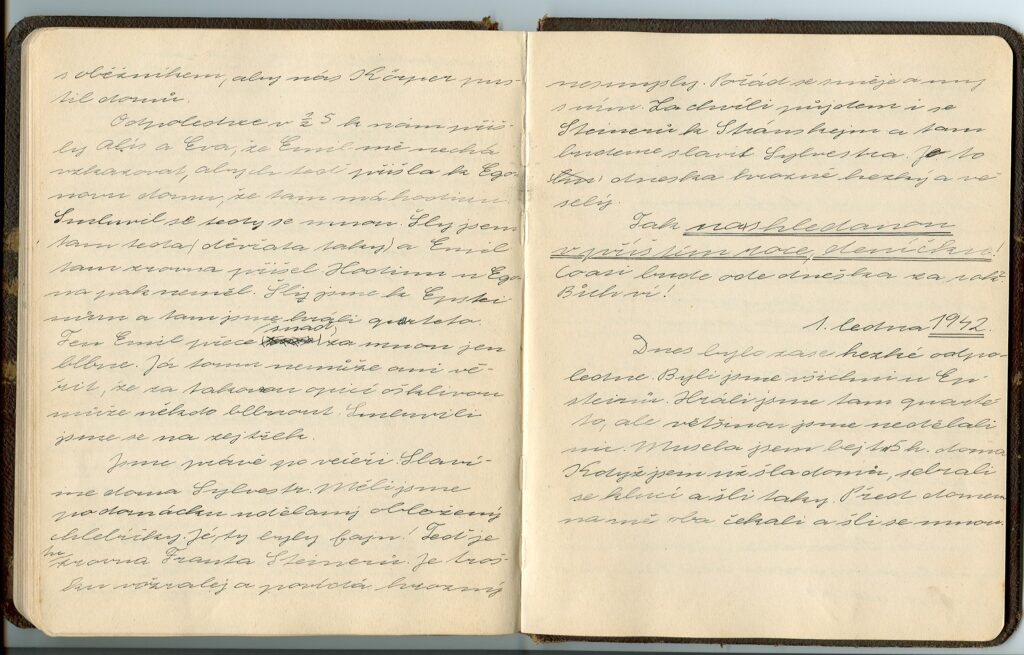 s oběžníkem, aby nás Körper pus-
til domů.
Odpoledne v ½ 5 k nám přiš-
ly Alis a Eva, že Emil mě nechá
vzkazovat, abych teď přišla k Ego-
novu domu, že tam má hodinu.
Smluvil se tedy se mnou. Šly jsem
tam teda (děvčata taky) a Emil
tam zrovna přišel. Hodinu u Ego-
na pak neměl. Šly jsme k Epstei-
nům a tam jsme hráli quarteto.
Ten Emil přece (snad) za mnou jen
blbne. Já tomu nemůže ani vě-
řit, že za takovou opicí ošklivou
může někdo blbnout. Smluvili
jsme se na zejtřek.
Jsme právě po večeři. Slaví-
me doma Sylvestr. Měli jsme
po domácku udělaný obložený
chlebíčky. Jé, ty byly fajn! Teď je
tu zrovna Franta Steinerů. Je troš-
ku vožralej a povídá hrozný
nesmysly. Pořád se směje a my
s ním. Za chvíli půjdem i se
Steinerů k Stránskejm a tam
budeme slavit Sylvestra. Je to
dneska hrozně hezký a ve-
selý.
Tak naschledanou
v příštím roce, deníčku!
Co asi bude ode dneška za rok?
Bůh ví!
1. ledna 1942.
Dnes bylo zase hezké odpo-
ledne. Byli jsme všichni u Ep-
steinů. Hráli jsme tam quarte-
to, ale většinou jsme nedělali
nic. Musela jsem bejt v 5 h. doma
Když jsem už šla domů, sebrali
se kluci a šli taky. Před domem
na mě oba čekali a šli se mnou